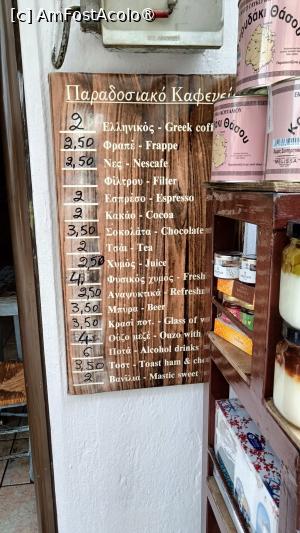 [c] AmFostAcolo®
Παραδοσιακό Καφενεί
2 Ελληνικός - Greek coff
2,50 Φραπέ - Frappe
2,50 Νες - Nescafe
Φίλτρου - Filter
2 Εσπρεσο - Espresso
2 Κακάο - Cocoa
3,50 Σοκολάτα - Chocolate
2 Τσάι - Tea
2,50 Χυμός - Juice
4, Φυσικός χυμος - Fresh
2,50 Αναψυκτικά - Refreshm
3,50 Μπυρα - Beer
3,50 Κρασί ποτ. - Glass of w
4 Ούζο μεζέ - Ouzo with
6 Ποτά - Alcohol drinks
3,50 Τοστ - Toast ham & che
2 Βανίλια - Mastic sweet
Θάσου
Θάσου